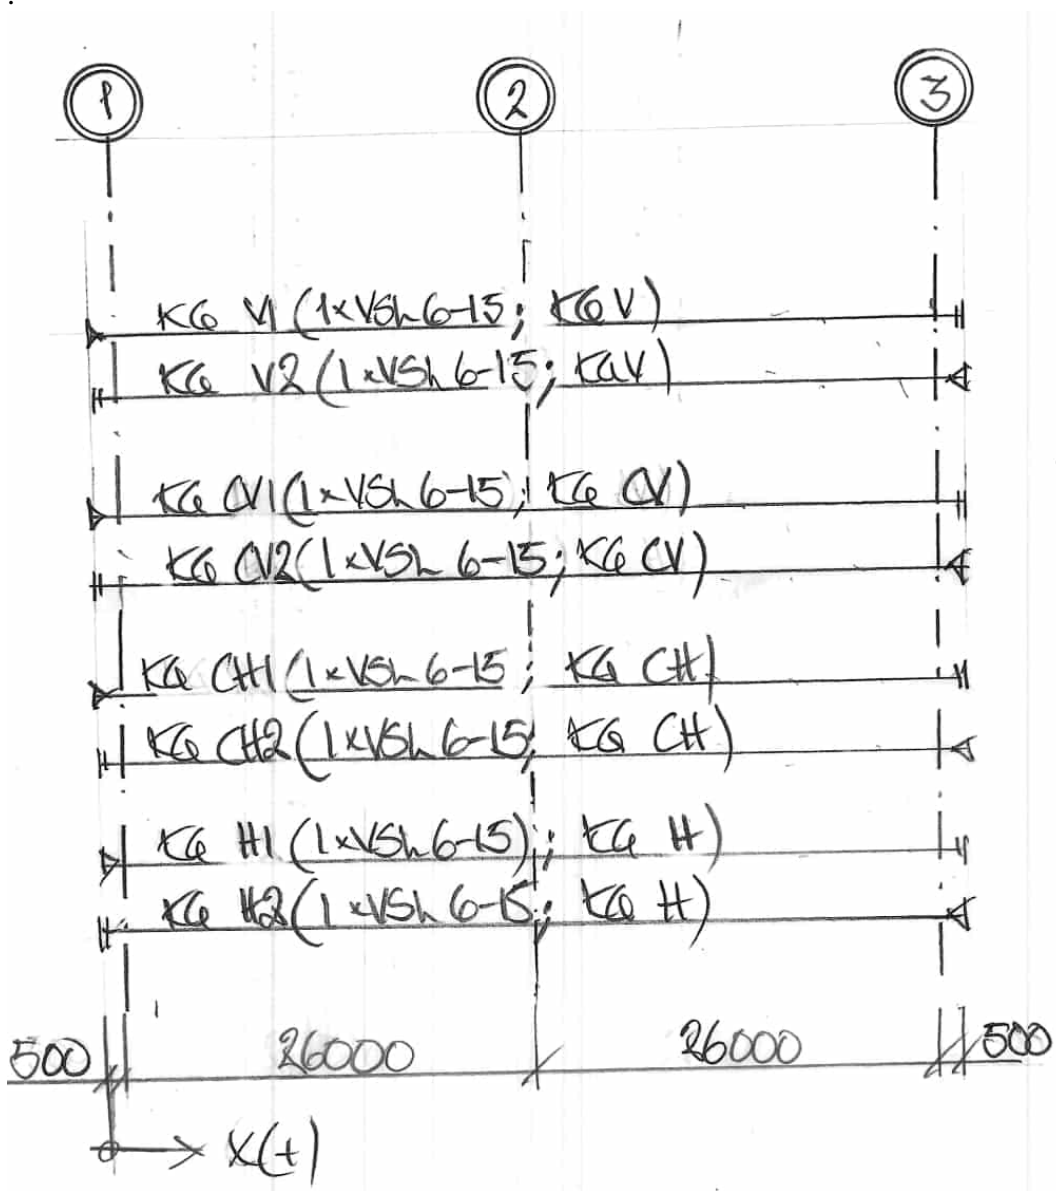 1 2 3
KG V1 (1xVSL 6-15; KG V)
KG V2 (1xVSL 6-15; KG V)
KG CV1 (1xVSL 6-15); KG CV)
KG CV2 (1xVSL 6-15; KG CV)
KG CH1 (1xVSL 6-15; KG CH)
KG CH2 (1xVSL 6-15; KG CH)
KG H1 (1xVSL 6-15); KG H)
KG H2 (1xVSL 6-15; KG H)
500 26000 26000 500
X(+)